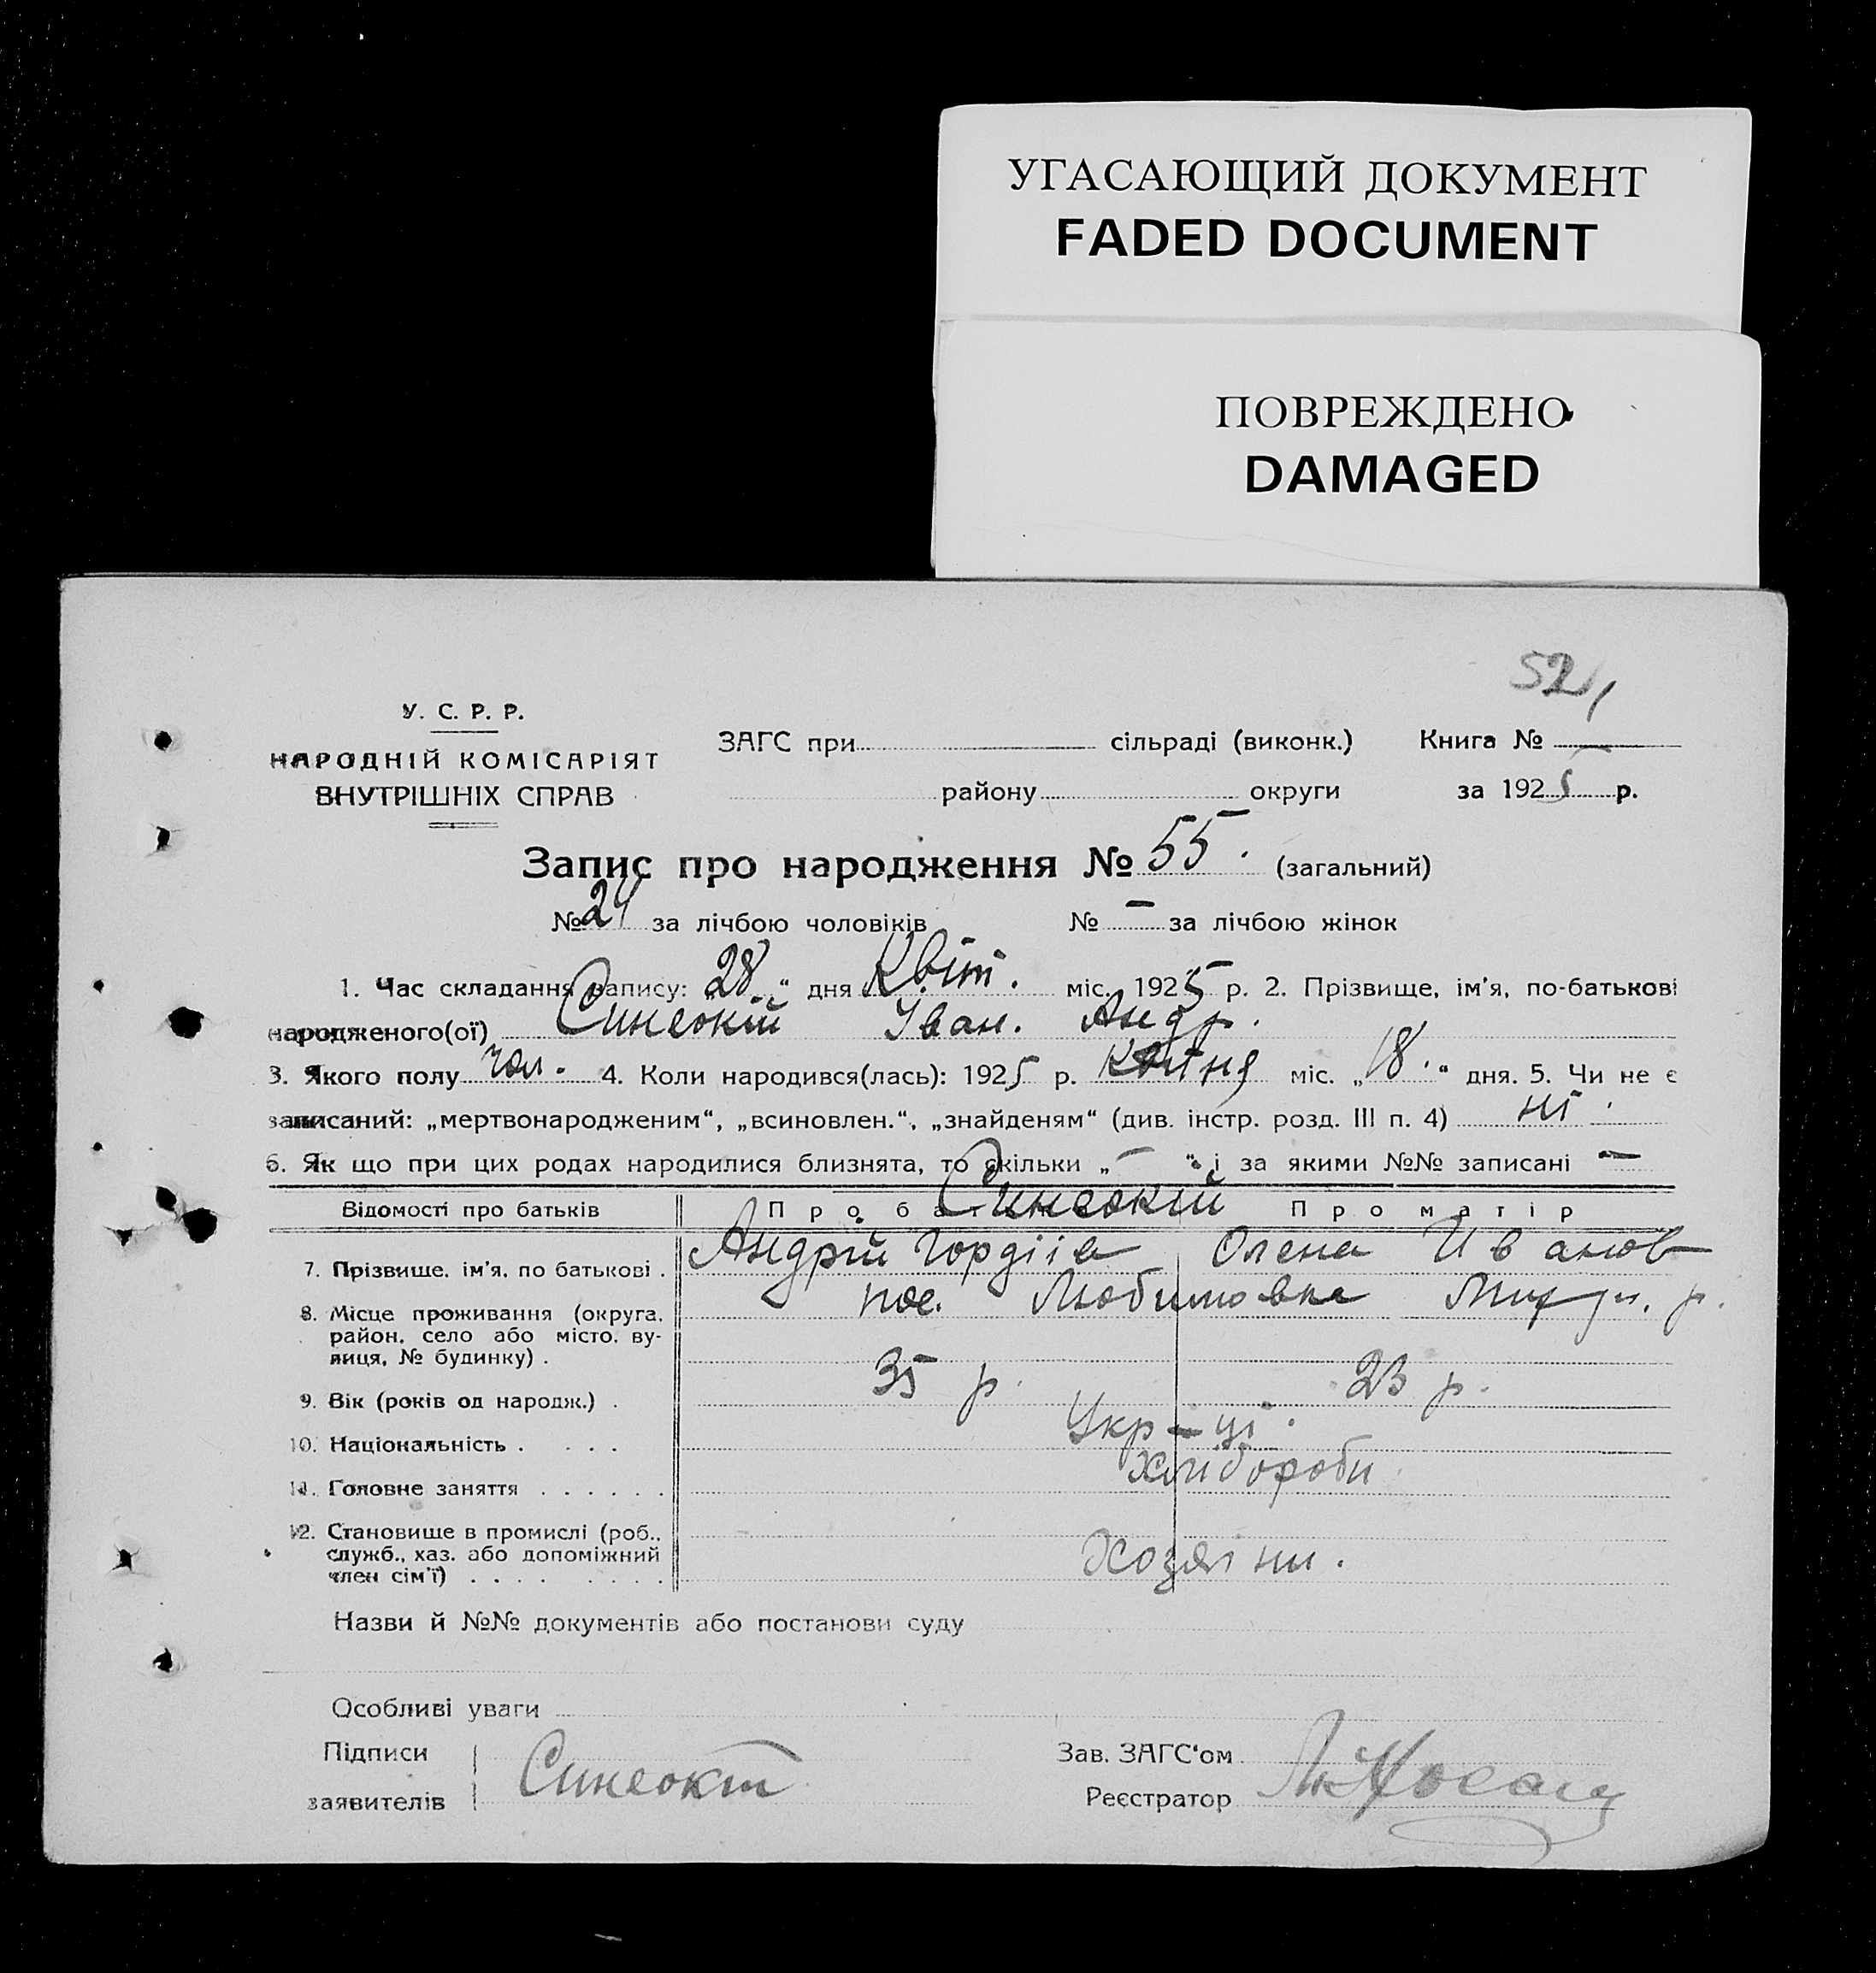 УГАСАЮЩИЙ ДОКУМЕНТ
FADED DOCUMENT
ПОВРЕЖДЕНО
DAMAGED
521
У. С. Р. Р.
НАРОДНІЙ КОМІСАРІЯТ
ВНУТРІШНІХ СПРАВ
ЗАГС при сільраді (виконк.) Книга №
району округи за 1925 р.
Запис про народження № 55. (загальний)
№ 24 за лічбою чоловіків № – за лічбою жінок
1. Час складання запису: „28“ дня Квіт. міс. 1925 р. 2. Прізвище, ім'я, по-батькові
народженого(ої) Синеокій Іван. Андр.
3. Якого полу чол. 4. Коли народився(лась): 1925 р. Квітня міс. „18“ дня. 5. Чи не є
записаний: „мертвонародженим“, „всиновлен.“, „знайденям“ (див. інстр. розд. III п. 4) ні.
6. Як що при цих родах народилися близнята, то скільки „–“ і за якими №№ записані –
Відомості про батьків Про батька Синеокій Про матір
7. Прізвище, ім'я, по батькові . Андрій Гордіїв Олена Иванов
8. Місце проживання (округа, пос. Любимовка р.
район, село або місто, ву-
лиця, № будинку) .
9. Вік (років од народж.) . 35 р. 23 р.
10. Національність . . . . Укр-ці.
11. Головне заняття . . . . . . Хлібороби.
12. Становище в промислі (роб.,
служб., хаз. або допоміжний Хозяїни.
член сім'ї) . . . . . . . .
Назви й №№ документів або постанови суду
Особливі уваги
Підписи Зав. ЗАГС'ом
Синеокій
заявителів Реєстратор